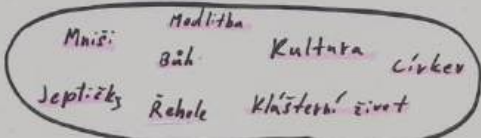 Modlitba
Mniši Bůh Kultura Církev
Jeptišky Řehole Klášterní život